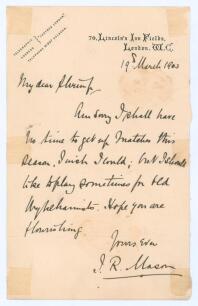 70, Lincoln's Inn Fields,
London. W.C.
19th March 1903
My dear Shrimp,
Am sorry I shall have
no time to get up matches this
season. I wish I could; but I should
like to play sometimes for Old
Wykehamists. Hope you are
flourishing.
Yours Ever
J. R. Mason